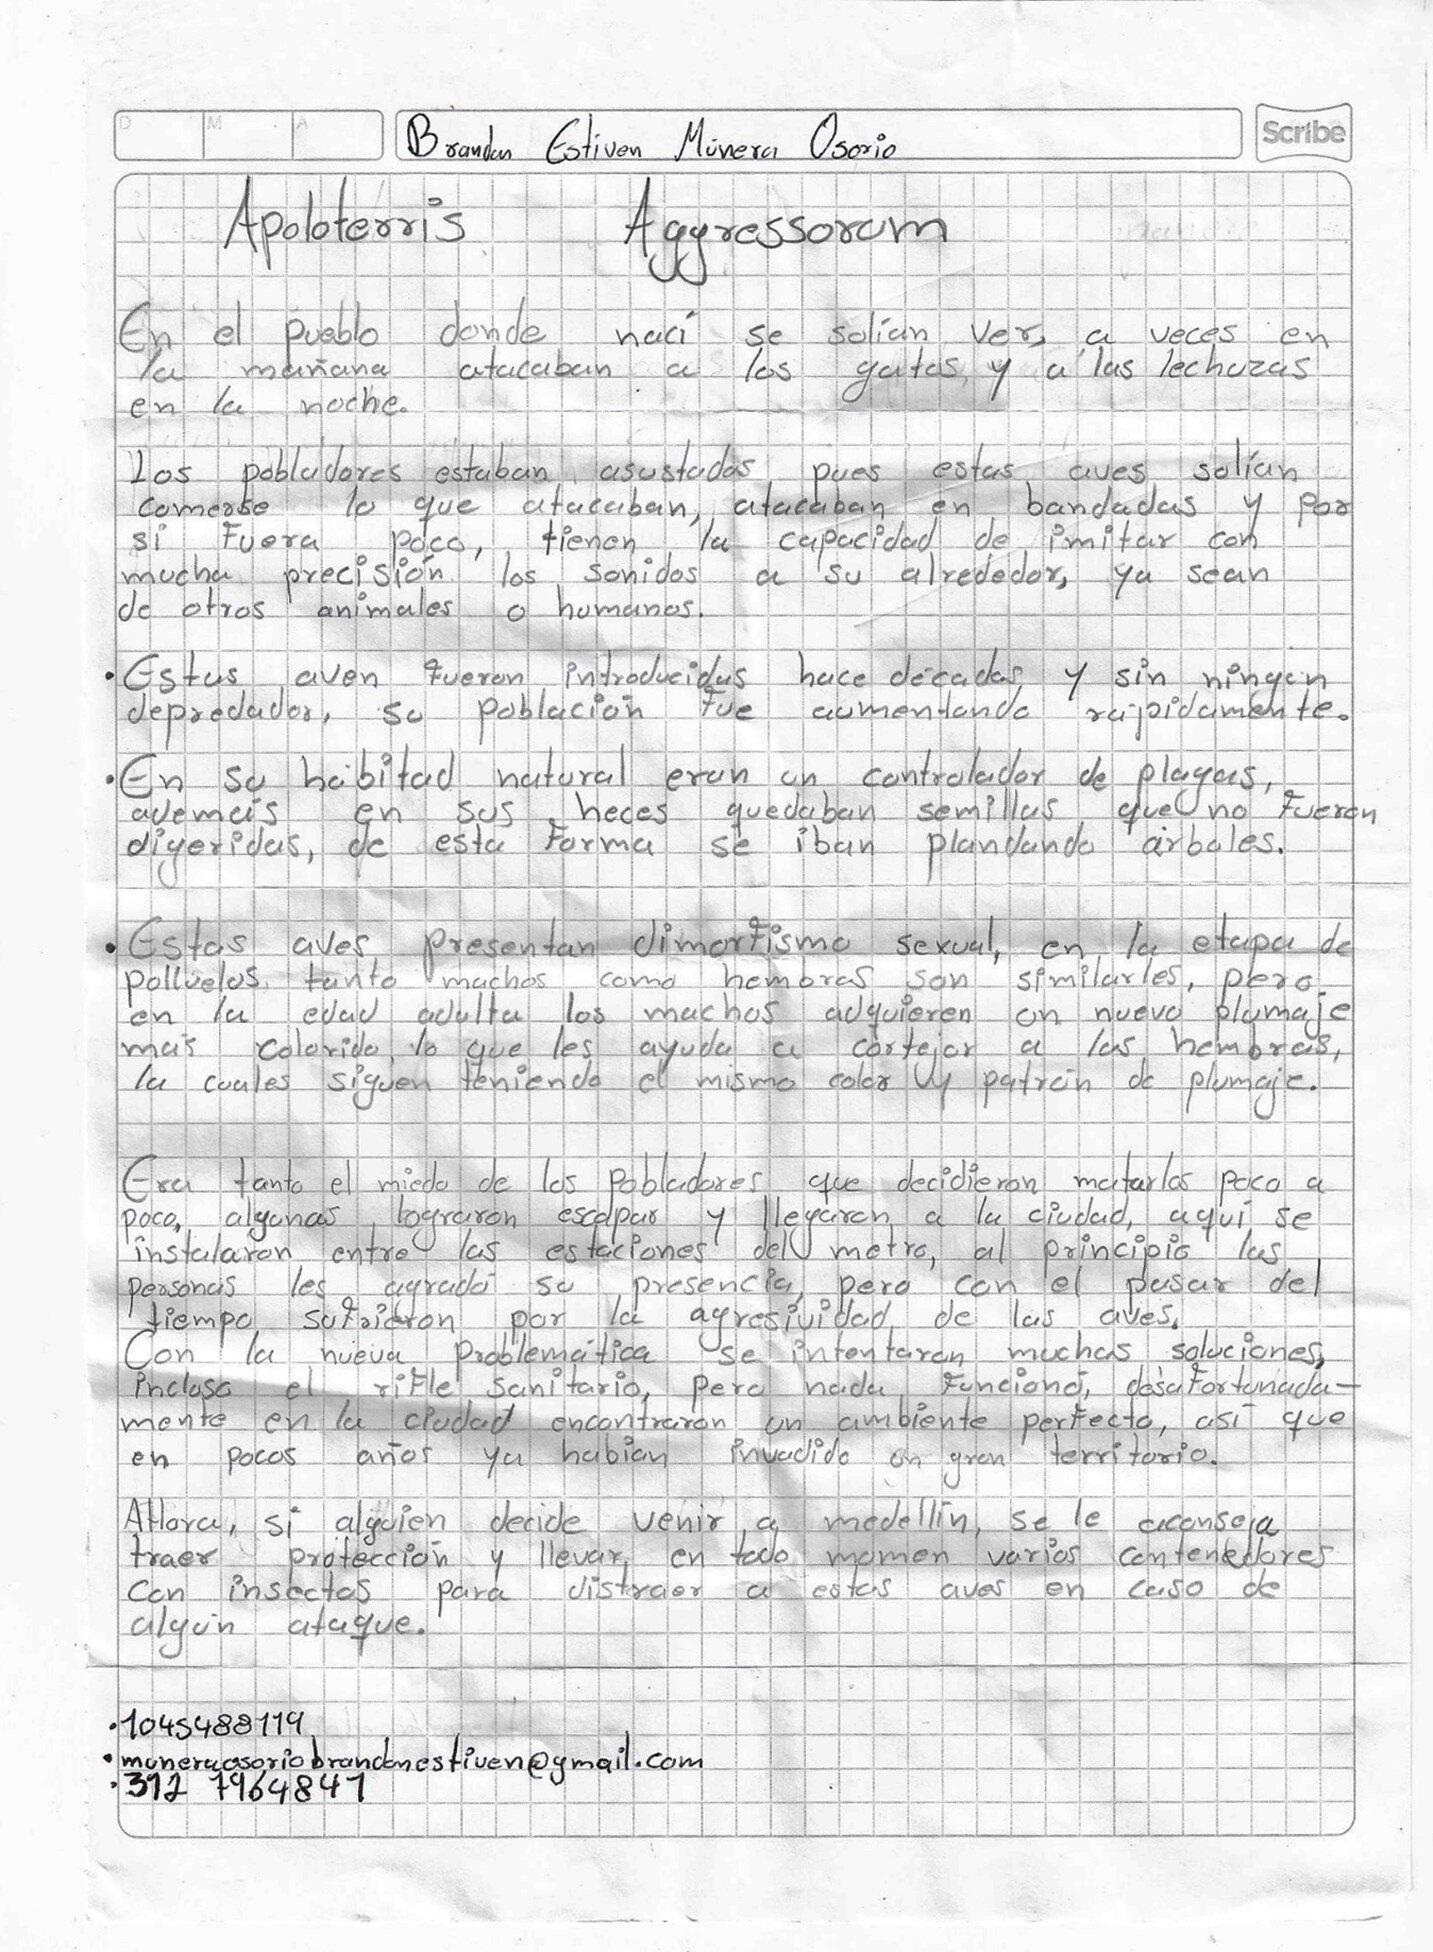 D M A
Brandan Estiven Múnera Osorio
Scribe
Apoloterris Aggressorum
En el pueblo donde nací se solían ver, a veces en
la mañana atacaban a los gatos, y a las lechuzas
en la noche.
Los pobladores estaban asustados pues estas aves solían
comerse lo que atacaban, atacaban en bandadas y por
si fuera poco, tienen la capacidad de imitar con
mucha precisión los sonidos a su alrededor, ya sean
de otros animales o humanos.
• Estas aven fueron introducidas hace décadas y sin ningun
depredador, su población fue aumentando rápidamente.
• En su habitad natural eran un controlador de plagas,
además en sus heces quedaban semillas que no fueron
digeridas, de esta forma se iban plandando árboles.
• Estas aves presentan dimorfismo sexual, en la etapa de
polluelos tanto machos como hembras son similarles, pero
en la edad adulta los machos adquieren un nuevo plumaje
más colorido, lo que les ayuda a cortejar a las hembras,
la cuales siguen teniendo el mismo color y patrón de plumaje.
Era tanto el miedo de los pobladores que decidieron matarlas poco a
poco, algunas lograron escapar y llegaron a la ciudad, aquí se
instalaron entre las estaciones del metro, al principio las
personas les agradó su presencia, pero con el pasar del
tiempo sufrieron por la agresividad de las aves.
Con la nueva problemática se intentaron muchas soluciones,
incluso el rifle sanitario, pero nada funcionó, desafortunada-
mente en la ciudad encontraron un ambiente perfecto, así que
en pocos años ya habían invadido un gran territorio.
AHora, si alguien decide venir a medellín, se le aconseja
traer protección y llevar en todo momen varios contenedores
con insectos para distraer a estas aves en caso de
algún ataque.
• 1045488119
• muneraosoriobrandanestiven@gmail.com
• 312 7964841